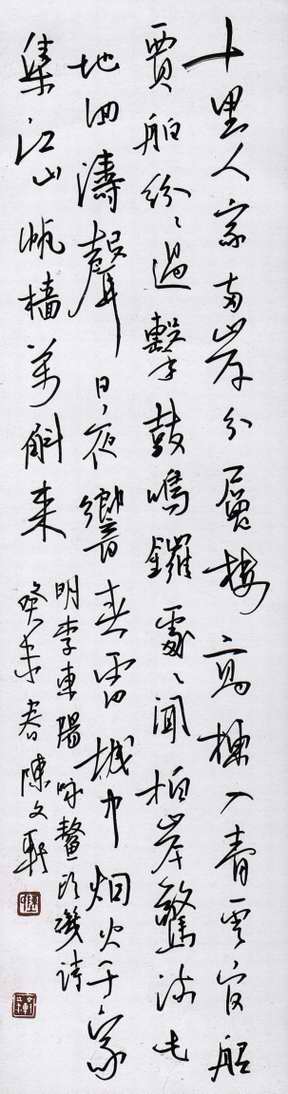 十里人家两岸分層樓高棟入青雲官船
賈舶紛〻過擊鼓鳴鑼處〻聞拍岸驚流此
地回濤聲日夜響春雷城中烟火千家
集江山帆檣萬斛来
明李東陽咏鰲頭磯詩
癸未春陳文